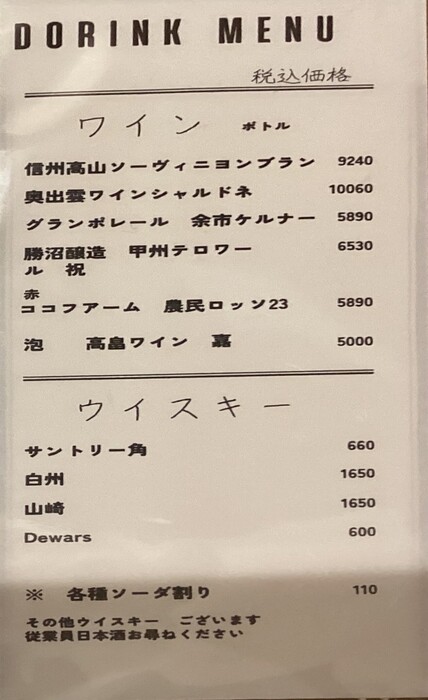 DORINK MENU
税込価格
ワイン ボトル
信州高山ソーヴィニヨンブラン 9240
奥出雲ワインシャルドネ 10060
グランポレール 余市ケルナー 5890
勝沼醸造 甲州テロワー 6530
ル 祝
赤
ココファーム 農民ロッソ23 5890
泡 高畠ワイン 嘉 5000
ウイスキー
サントリー角 660
白州 1650
山崎 1650
Dewars 600
※ 各種ソーダ割り 110
その他ウイスキー ございます
従業員日本酒お尋ねください